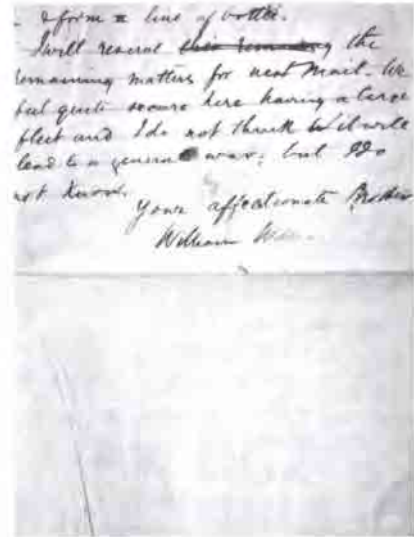 & form a line of battle.
I will reserve their remaining the
remaining matters for next Mail. We
feel quite secure here having a large
fleet and I do not think it will
lead to a general war; but I do
not know.
Your affectionate Brother
William